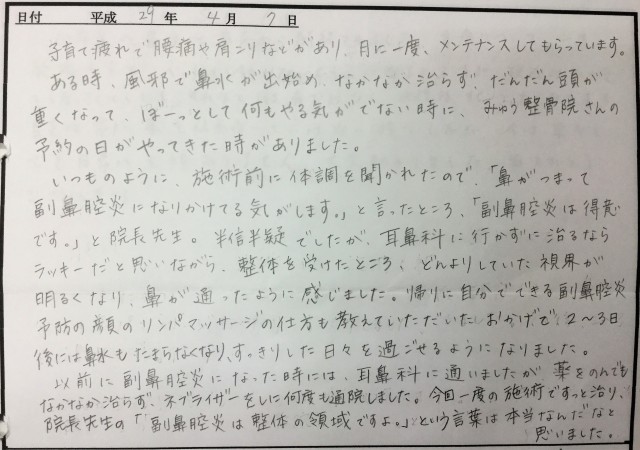 日付 平成 29 年 4 月 7 日
子育て疲れで腰痛や肩こりなどがあり、月に一度、メンテナンスしてもらっています。
ある時、風邪で鼻水が出始め、なかなか治らず、だんだん頭が
重くなって、ぼーっとして何もやる気がでない時に、みゅう整骨院さんの
予約の日がやってきた時がありました。
いつものように、施術前に体調を聞かれたので、「鼻がつまって
副鼻腔炎になりかけてる気がします。」と言ったところ、「副鼻腔炎は得意
です。」と院長先生。半信半疑でしたが、耳鼻科に行かずに治るなら
ラッキーだと思いながら、整体を受けたところ、どんよりしていた視界が
明るくなり、鼻が通ったように感じました。帰りに自分でできる副鼻腔炎
予防の顔のリンパマッサージの仕方も教えていただいたおかげで、2〜3日
後には鼻水もたまらなくなり、すっきりした日々を過ごせるようになりました。
以前に副鼻腔炎になった時には、耳鼻科に通いましたが薬をのんでも
なかなか治らず、ネブライザーをしに何度も通院しました。今回一度の施術ですっと治り、
院長先生の「副鼻腔炎は整体の領域ですよ。」という言葉は本当なんだなと
思いました。